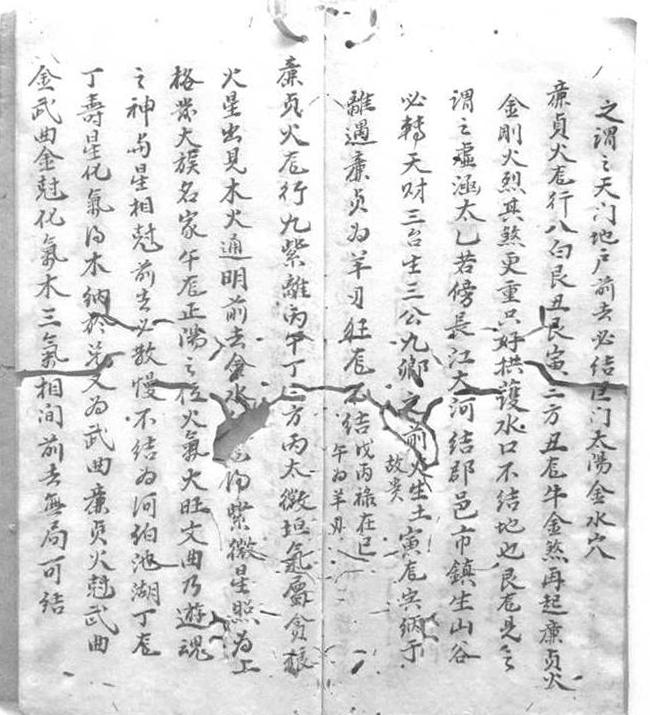 之謂之天门地户前去必结巨门太陽金水穴
廉贞火尨行八白艮丑艮寅三方丑尨牛金煞再起廉贞火
金剛火烈其煞更重只好拱護水口不结地也艮尨見之
謂之虚涵太乙若傍長江大河结郡邑市鎮生山谷
必轉天财三台生三公九卿之前火生土寅尨宾炳于
故贵
離遇廉贞为羊刃狂尨不结戊丙禄在巳
午为羊刃
廉贞火尨行九紫離丙午丁三方丙太微垣氣屬貪狼
火星出見木火通明前去金水 得紫微星照为上
格發大族名家午尨正陽之位火氣大旺文曲乃遊魂
之神与星相尅前去必散慢不结为河伯池湖丁尨
丁壽星化氣为木納於兑又为武曲廉贞火尅武曲
金武曲金尅化氣木三氣相间前去無局可结